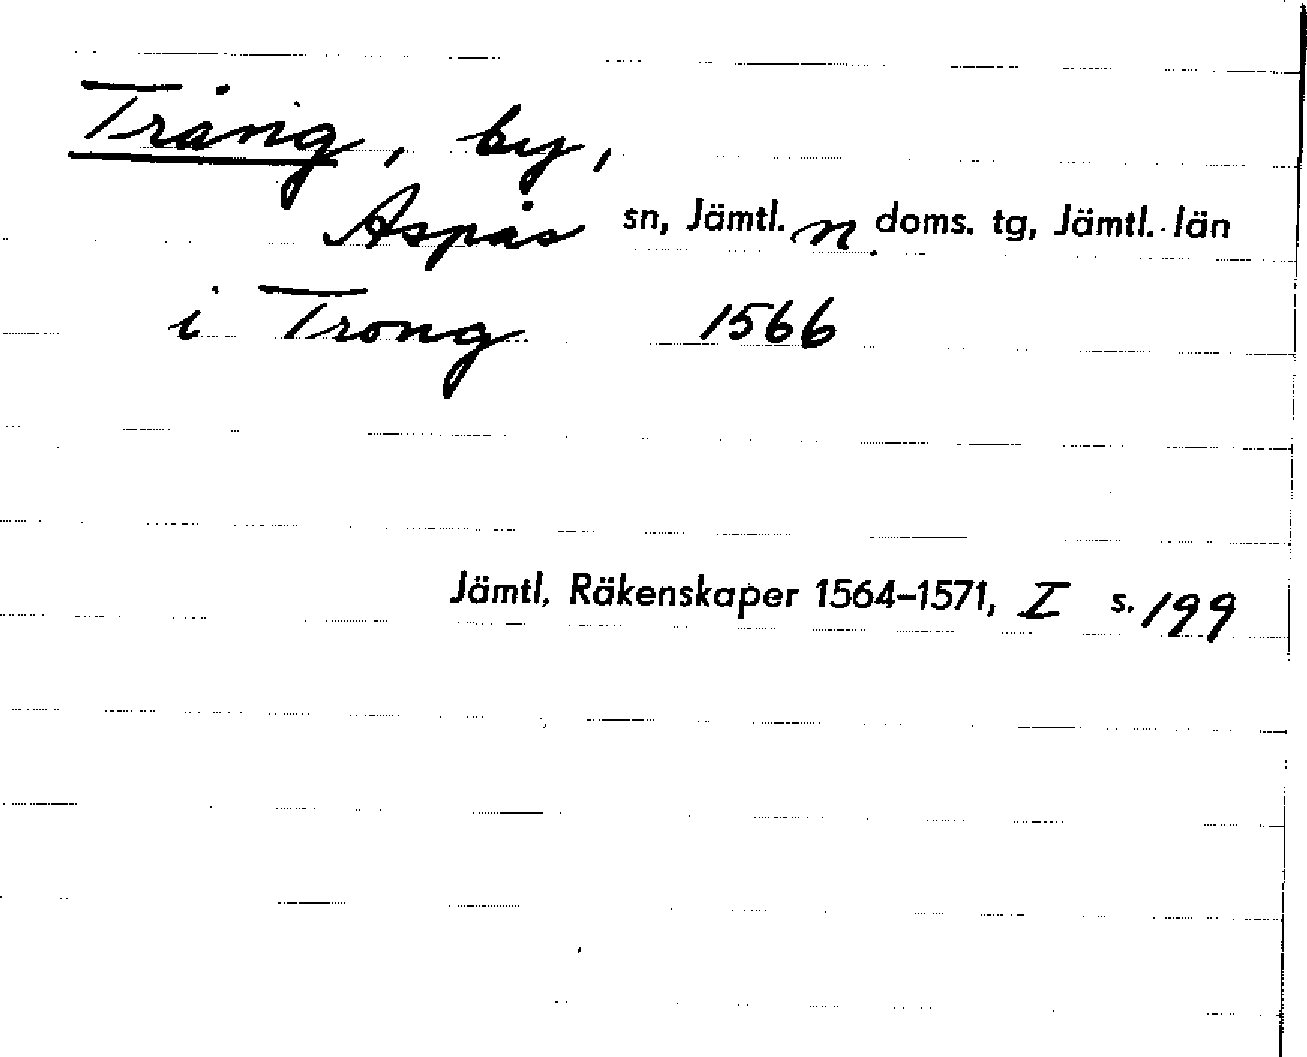 Trång, by,
Aspås sn, Jämtl. n. doms. tg, Jämtl. län
i Trong 1566
Jämtl, Räkenskaper 1564–1571, I s. 199